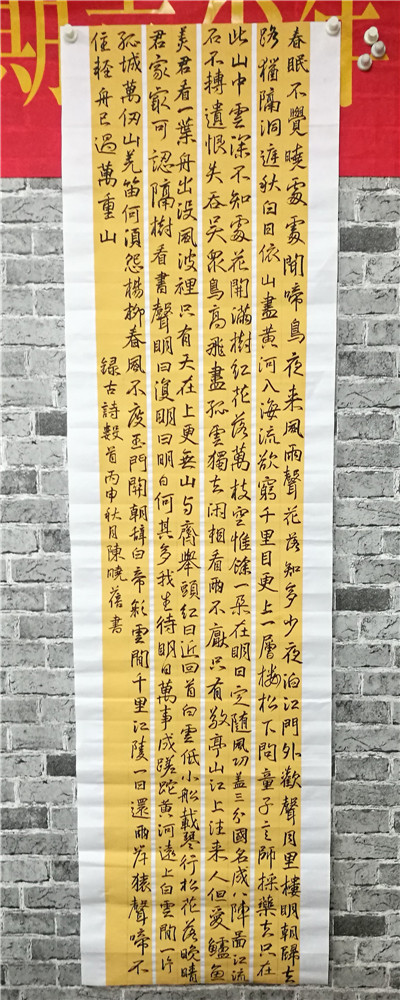 期
春眠不覺曉處處聞啼鳥夜来風雨聲花落知多少夜泊江門外歡聲月里樓明朝歸去
路猶隔洞庭秋白日依山盡黄河入海流欲窮千里目更上一層樓松下問童子言師採藥去只在
此山中雲深不知處花開滿樹红花落萬枝空惟餘一朶在明日定随風功盖三分國名成八陣圖江流
石不轉遺恨失吞吴衆鳥高飛盡孤雲獨去闲相看兩不厭只有敬亭山江上往来人但愛鱸魚
美君看一葉舟出没風波裡只有天在上更無山与齊舉頭红日近回首白雲低小船載琴行松花落晚晴
君家寂可認隔樹看書聲明日復明日明日何其多我生待明日萬事成蹉跎黄河遠上白雲間一片
孤城萬仞山羌笛何須怨楊柳春風不度玉門關朝辭白帝彩雲間千里江陵一日還兩岸猿聲啼不
住輕舟已過萬重山 録古詩數首丙申秋月陳曉蓓書